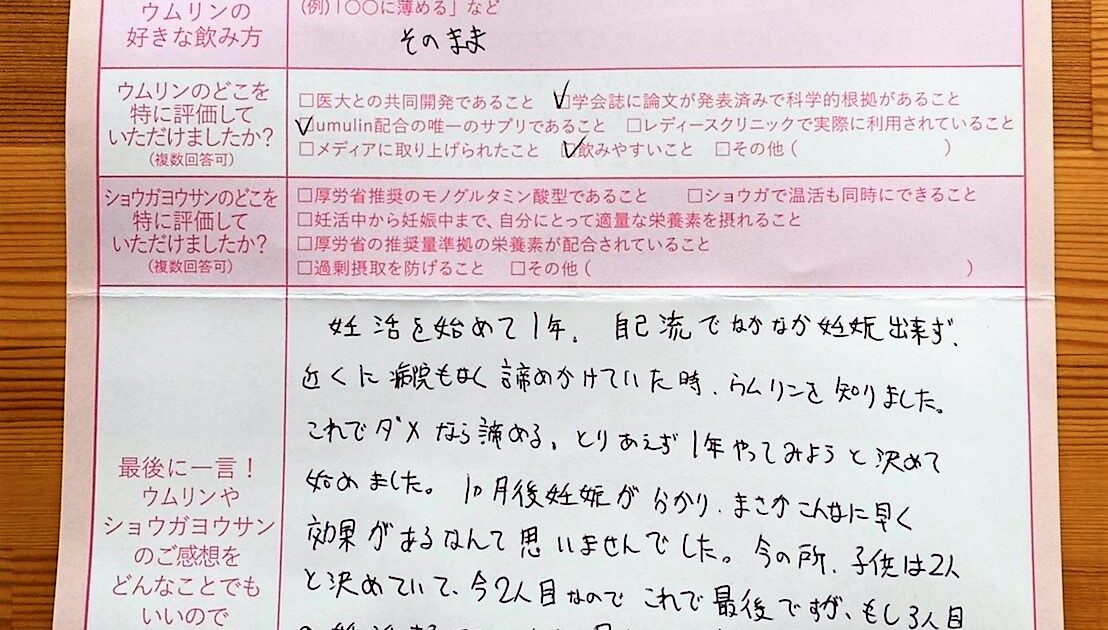 ウムリンの
好きな飲み方
(例)「〇〇に薄める」など
そのまま
ウムリンのどこを
特に評価して
いただけましたか?
(複数回答可)
□医大との共同開発であること □学会誌に論文が発表済みで科学的根拠があること
□umulin配合の唯一のサプリであること □レディースクリニックで実際に利用されていること
□メディアに取り上げられたこと □飲みやすいこと □その他( )
ショウガヨウサンのどこを
特に評価して
いただけましたか?
(複数回答可)
□厚労省推奨のモノグルタミン酸型であること □ショウガで温活も同時にできること
□妊活中から妊娠中まで、自分にとって適量な栄養素を摂れること
□厚労省の推奨量準拠の栄養素が配合されていること
□過剰摂取を防げること □その他( )
最後に一言!
ウムリンや
ショウガヨウサン
のご感想を
どんなことでも
いいので
妊活を始めて1年。自己流でなかなか妊娠出来ず、
近くに病院もなく諦めかけていた時、ウムリンを知りました。
これでダメなら諦める。とりあえず1年やってみようと決めて
始めました。10月後妊娠が分かり、まさかこんなに早く
効果があるなんて思いませんでした。今の所、子供は2人
と決めていて、今2人目なのでこれで最後ですが、もし3人目